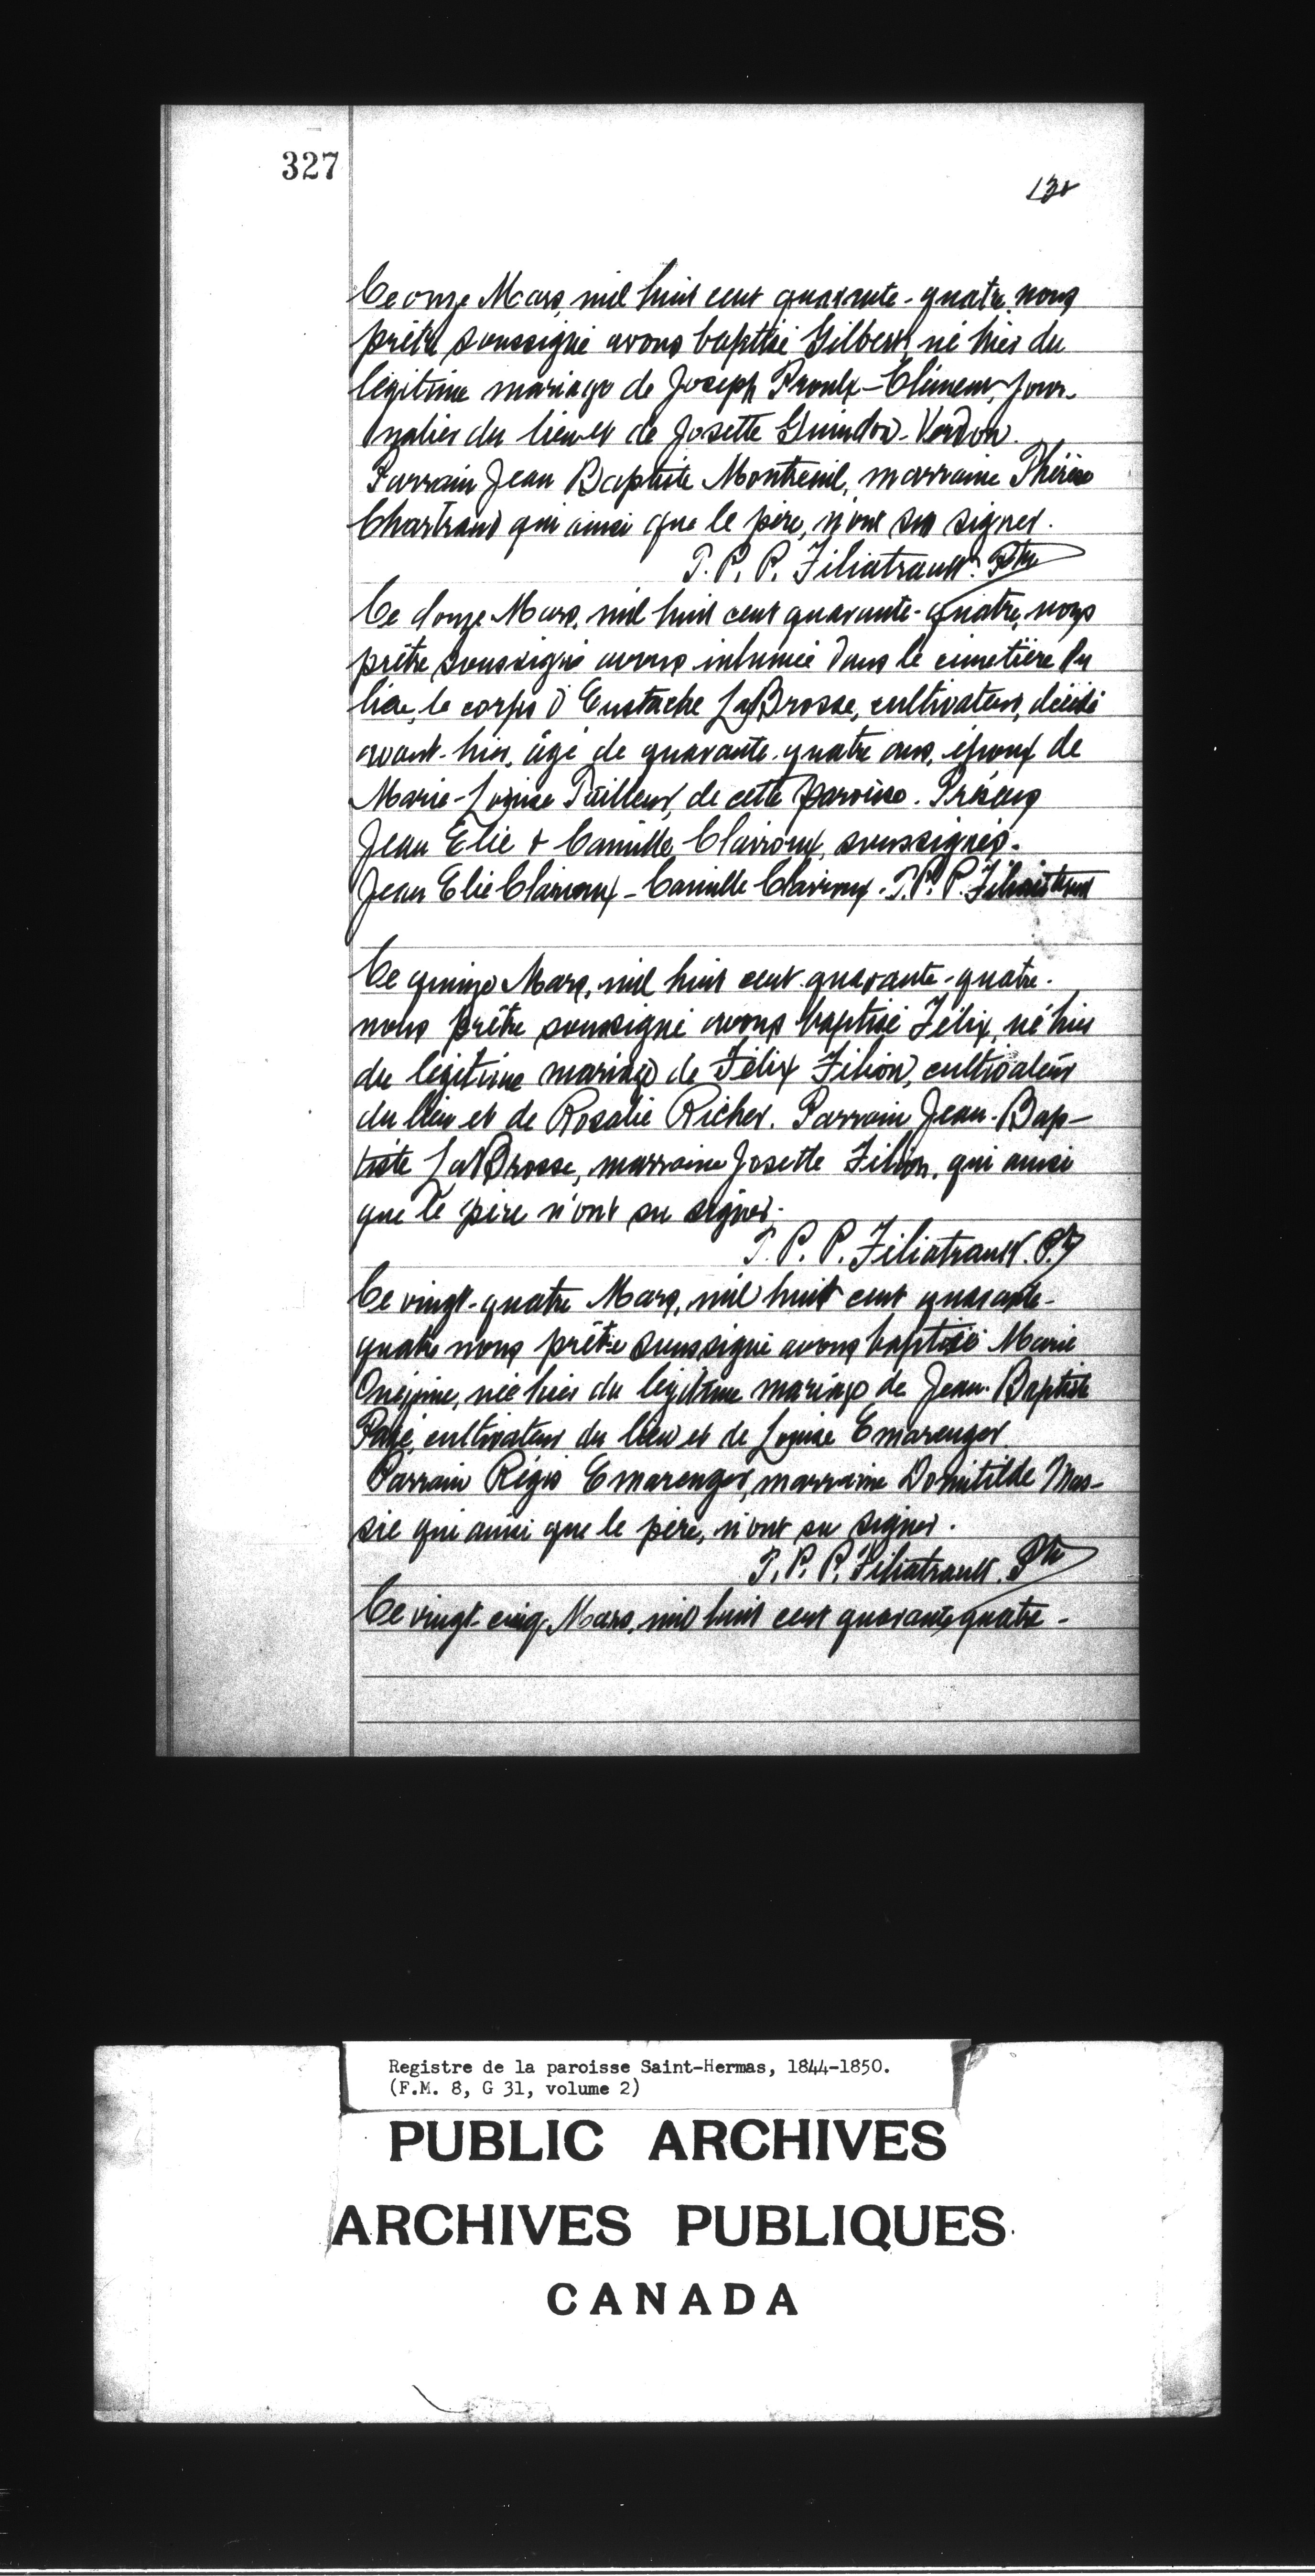 327
138
Ce onze Mars, mil huit cent quarante-quatre, nous
prêtre soussigné avons baptisé Gilbert, né hier du
légitime mariage de Joseph Proulx-Clément, jour-
nalier du lieu et de Josette Guindon-Verdon.
Parrain Jean Baptiste Montreuil, marraine Thérèse
Chartrand qui ainsi que le père, n'ont su signer.
T. P. P. Filiatrault. Ptre
Ce douze Mars, mil huit cent quarante-quatre, nous
prêtre soussigné avons inhumé dans le cimetière du
lieu, le corps d'Eustache LaBrosse, cultivateur, décédé
avant-hier, âgé de quarante-quatre ans, époux de
Marie-Louise Tailleur, de cette paroisse. Présens
Jean Elie & Camille Clairoux, soussignés.
Jean Elie Clairoux - Camille Clairoux. T. P. P. Filiatrault
Ce quinze Mars, mil huit cent quarante-quatre.
nous prêtre soussigné avons baptisé Félix, né hier
du légitime mariage de Félix Filion, cultivateur
du lieu et de Rosalie Richer. Parrain Jean-Bap-
tiste LaBrosse, marraine Josette Filion, qui ainsi
que le père n'ont su signer.
T. P. P. Filiatrault. Pt
Ce vingt-quatre Mars, mil huit cent quarante-
quatre nous prêtre soussigné avons baptisé Marie
Onézime, née hier du légitime mariage de Jean-Baptiste
Payé, cultivateur du lieu et de Louise Emarenger.
Parrain Régis Emarenger, marraine Domitilde Mas-
sie qui ainsi que le père, n'ont su signer.
T. P. P. Filiatrault. Ptr
Ce vingt-cinq Mars, mil huit cent quarante-quatre-
Registre de la paroisse Saint-Hermas, 1844-1850.
(F.M. 8, G 31, volume 2)
PUBLIC ARCHIVES
ARCHIVES PUBLIQUES
CANADA